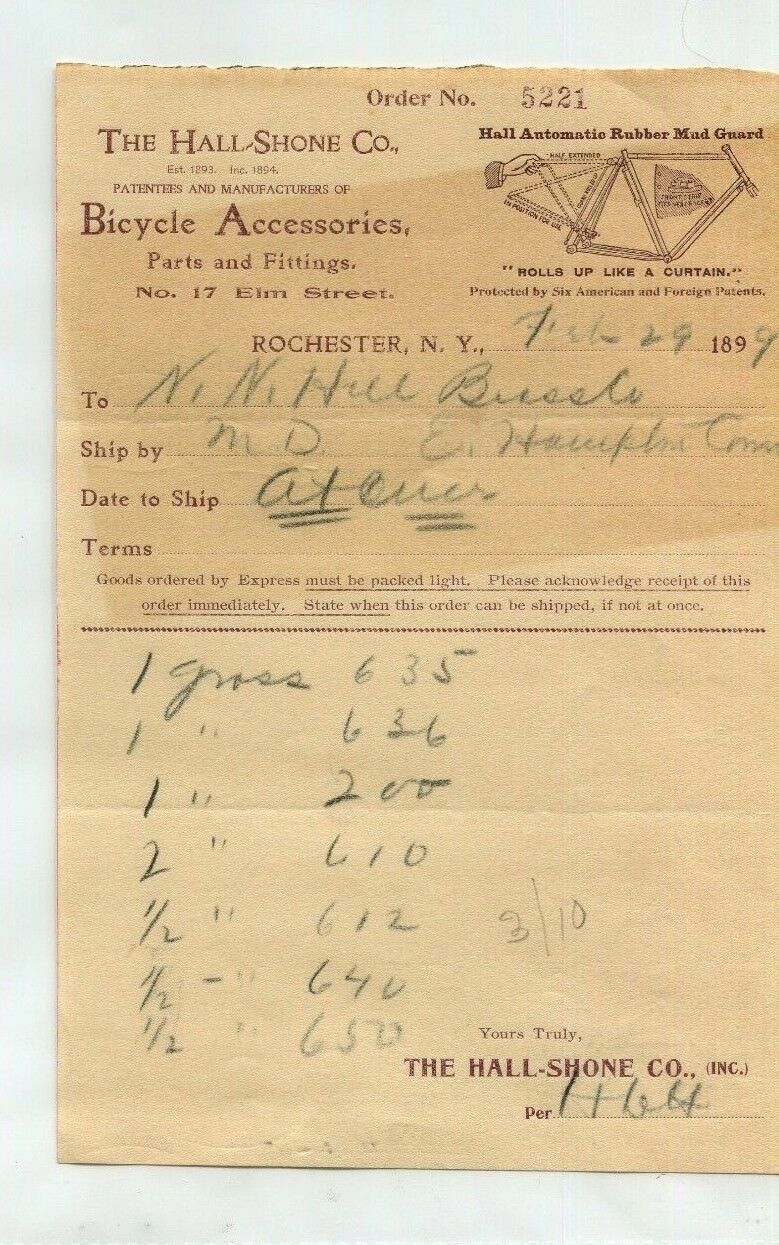 Order No. 5221
THE HALL-SHONE CO.,
Est. 1893. Inc. 1894.
PATENTEES AND MANUFACTURERS OF
Bicycle Accessories,
Parts and Fittings.
No. 17 Elm Street.
Hall Automatic Rubber Mud Guard
HALF EXTENDED
IN POSITION FOR USE
"ROLLS UP LIKE A CURTAIN."
Protected by Six American and Foreign Patents.
ROCHESTER, N. Y., Feb 29 1899
To N. N. Hill Brass Co
Ship by M.D. E. Hampton Conn
Date to Ship At Once
Terms
Goods ordered by Express must be packed light. Please acknowledge receipt of this
order immediately. State when this order can be shipped, if not at once.
1 gross 635
1 " 636
1 " 200
2 " 610
1/2 " 612
3/10
1/2 - " 640
1/2 " 650
Yours Truly,
THE HALL-SHONE CO., (INC.)
Per